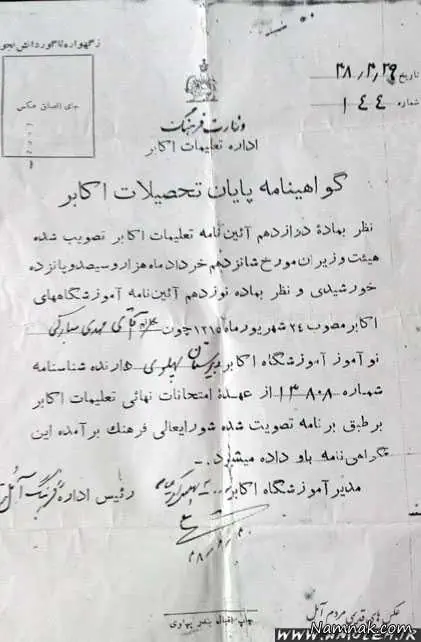 ز گهواره تا گور دانش بجوی
جای الصاق عکس
تاریخ ۳۸,۳,۲۹
شماره ۱۴۴
وزارت فرهنگ
اداره تعلیمات اکابر
گواهینامه پایان تحصیلات اکابر
نظر بماده دوازدهم آئین‌نامه تعلیمات اکابر تصویب شده
هیئت وزیران مورخ شانزدهم خرداد ماه هزار و سیصد و پانزده
خورشیدی و نظر بماده نوزدهم آئین‌نامه آموزشگاههای
اکابر مصوب ۲۴ شهریور ماه ۱۳۱۵ چون آقای مهدی مبارکی
نو آموز آموزشگاه اکابر دبیرستان پهلوی دارنده شناسنامه
شماره ۱۳۸۰۸ از عهدۀ امتحانات نهائی تعلیمات اکابر
بر طبق برنامه تصویت شده شورایعالی فرهنگ برآمده این
گواهی نامه باو داده میشود .ـ
مدیر آموزشگاه اکابر
رئیس اداره فرهنگ آمل
چاپ اقبال بندر پهلوی
عکس های قدیمی مردم آمل
Namnak.com
WWW.AMOLEH.IR